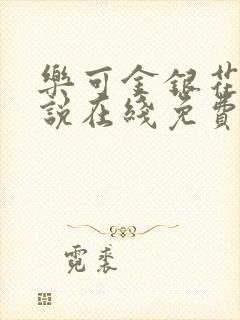 樂可金銀花
說在綫免費
霓裘